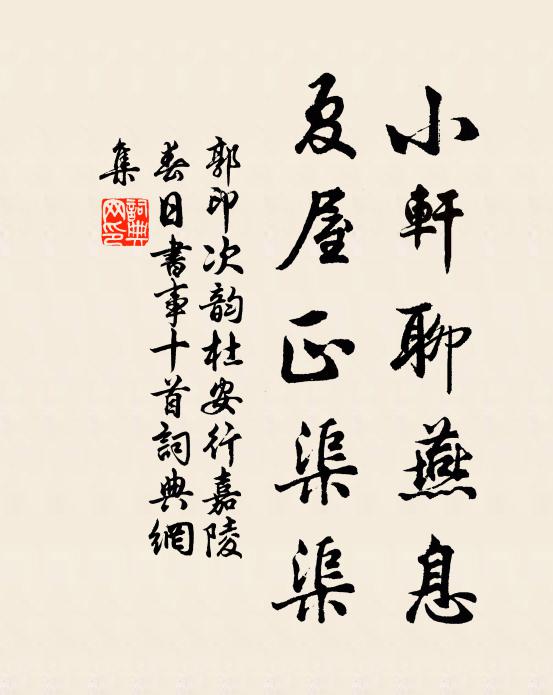 小軒聊燕息
夏屋正渠渠
郭印次韵杜安行嘉陵
春日書事十首詞典網
集
詞典網印